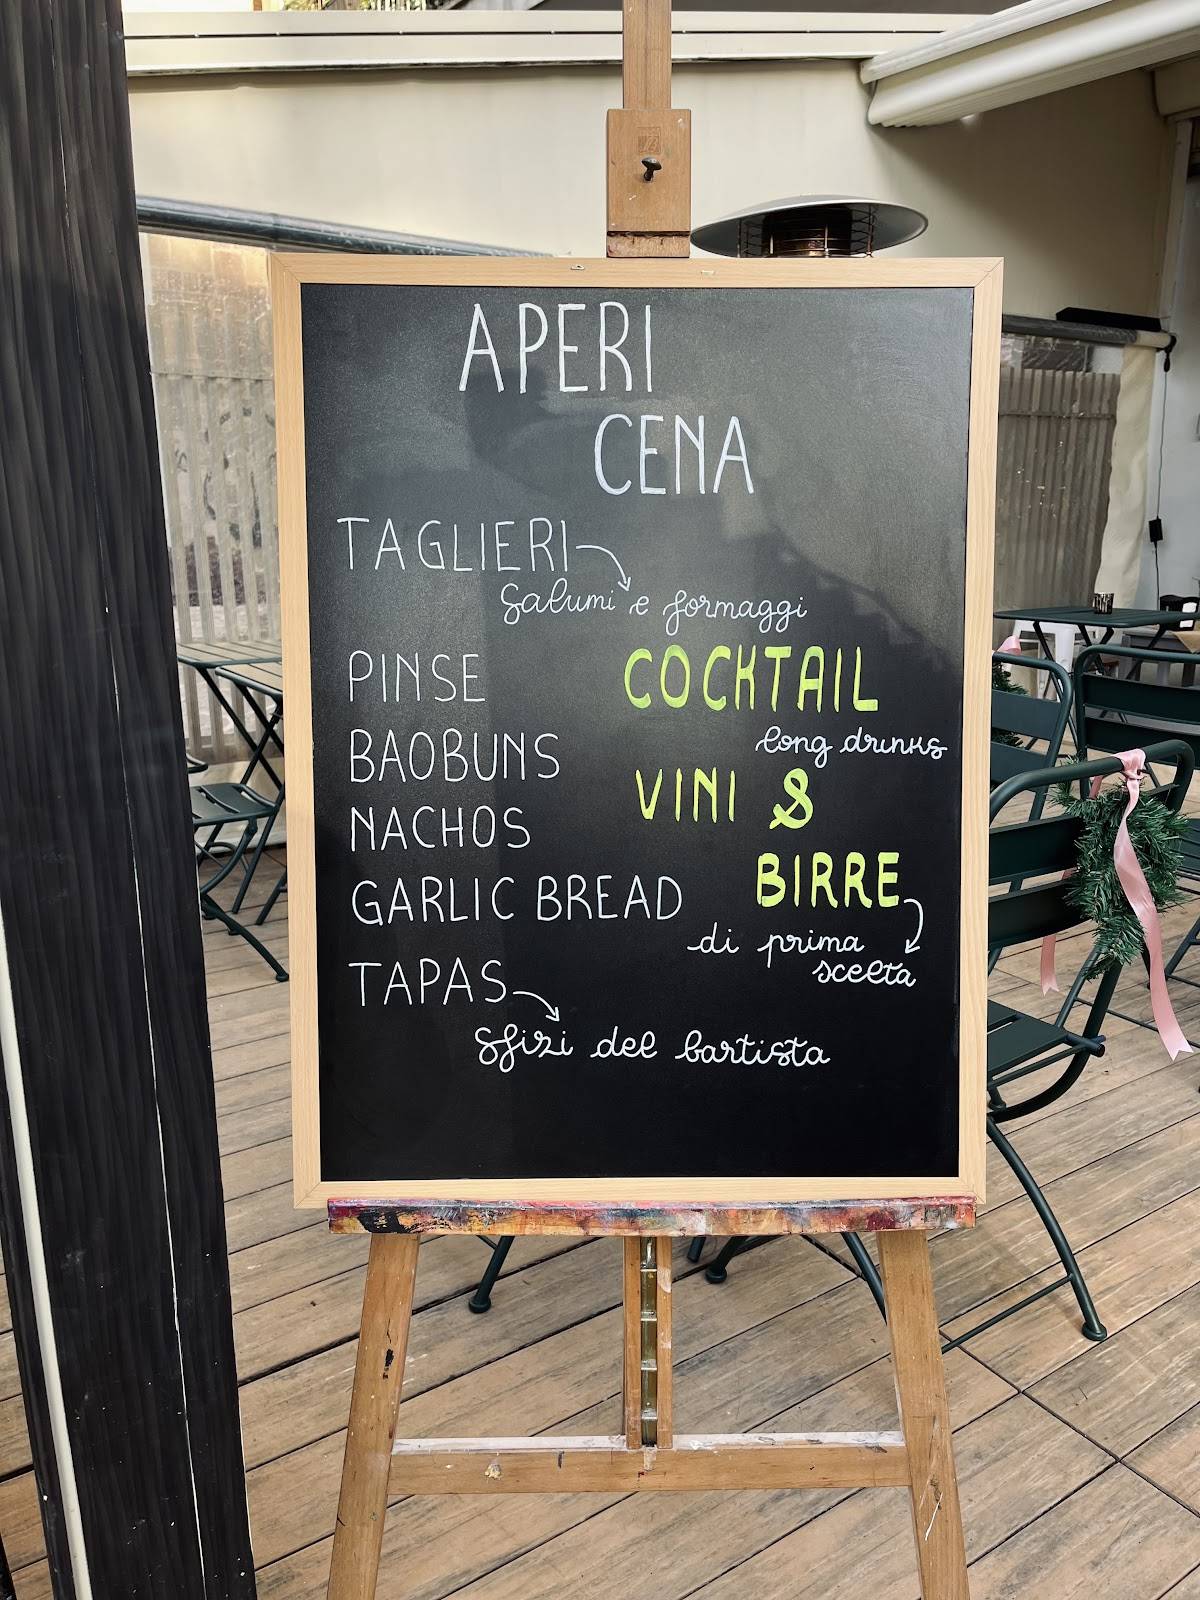 APERI
CENA
TAGLIERI
Salumi e formaggi
PINSE
BAOBUNS
NACHOS
GARLIC BREAD
TAPAS
Sfizi del bartista
COCKTAIL
long drinks
VINI &
BIRRE
di prima
scelta